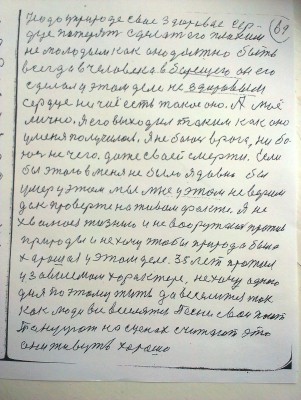 Надо природе свое здоровье сер-
це
не молодым как оно должно быть
всегда в человека в он его
сделал у этом деле не здоровым
сердце ни чиё есть такое оно. А моё
лично. Я его выходил таким как оно
у меня получилось. Я не боюсь врага, ни бо-
юсь не чего, даже своей смерти. Если
бы этого в меня не было я давно бы
умер у этом мы мне у этом не верим
дак проверте на живом факте. Я не
хвалюсь жизнию и не вооружаюсь против
природы и не хочу чтобы природа была
хорошая у этом деле. 35 лет прожил
у зависимом характере, не хочу одного
дня по этому жить да веселитца так
как люди все веселятца Песни свои поют
Танцуют на сценах считают это
они живуть хорошо
89